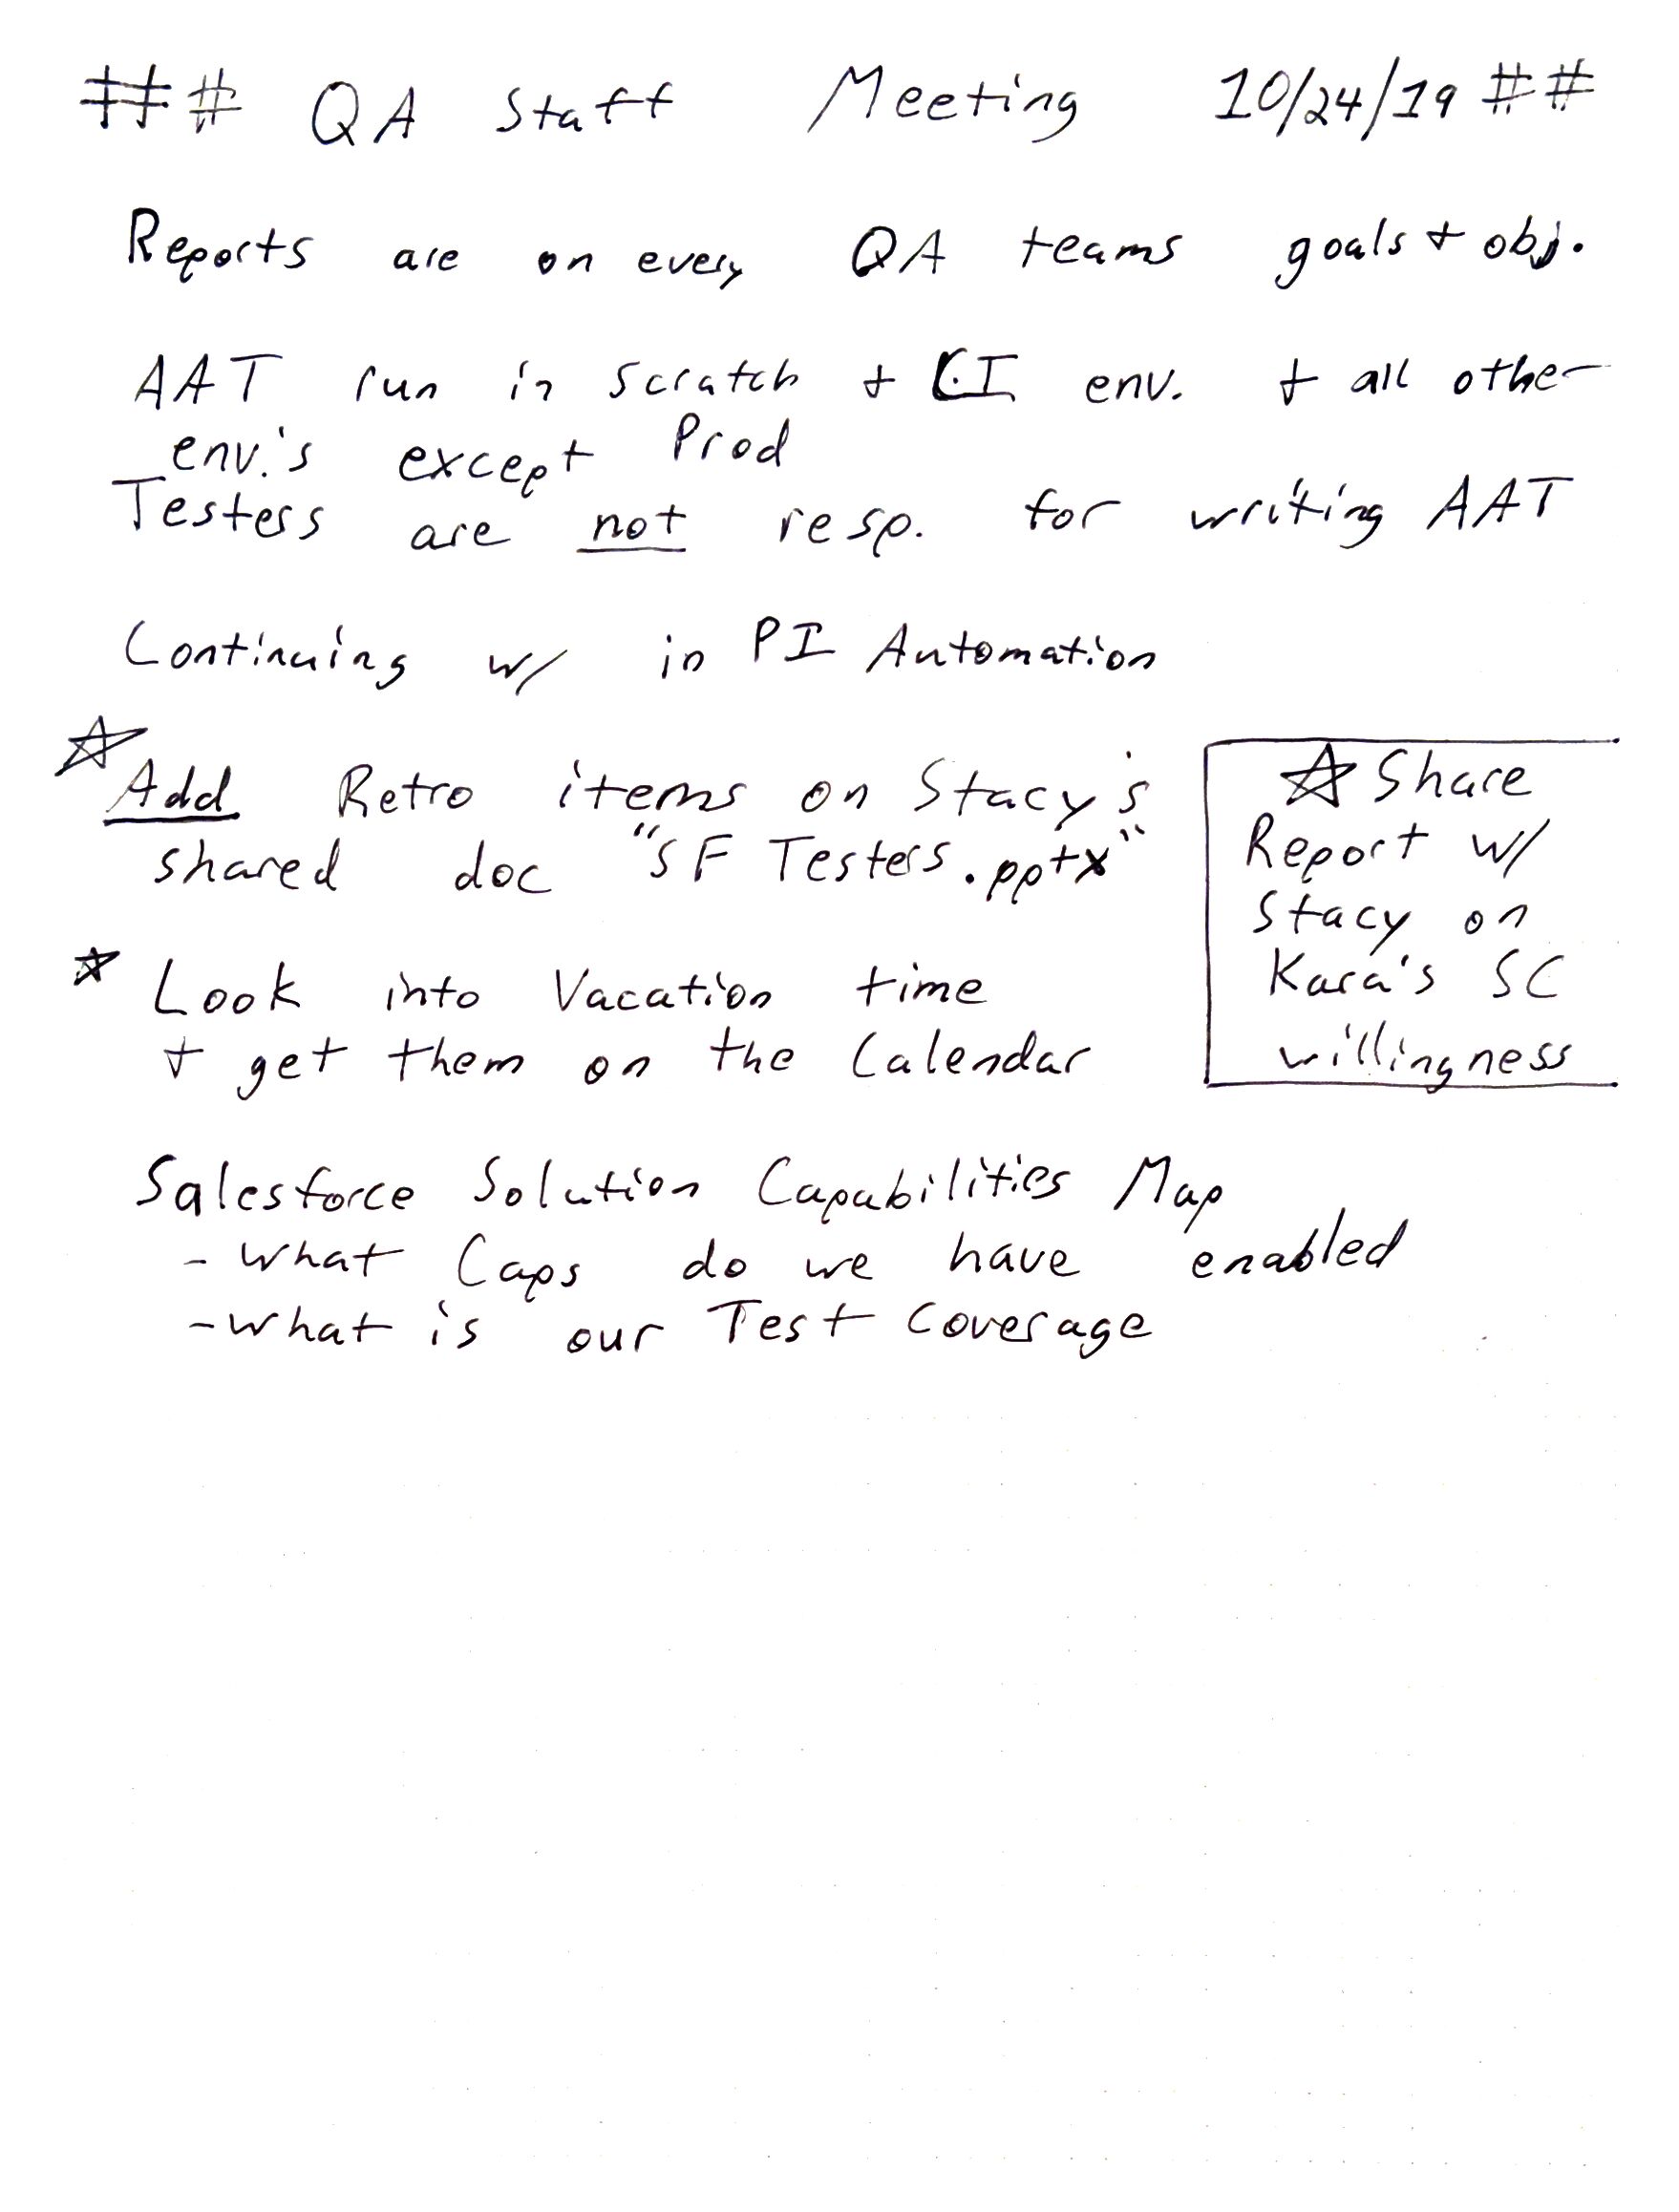 ## QA Staff Meeting 10/24/19 ##
Reports are on every QA teams goals + obj.
AAT run in scratch + CI env. + all other
env.'s except Prod
Testers are not resp. for writing AAT
Continuing w/ in PI Automation
☆ Add Retro items on Stacy's
shared doc "SF Testers.pptx"
☆ Look into Vacation time
+ get them on the Calendar
☆ Share
Report w/
Stacy on
Kara's SC
willingness
Salesforce Solution Capabilities Map
- What Caps do we have enabled
- What is our Test Coverage